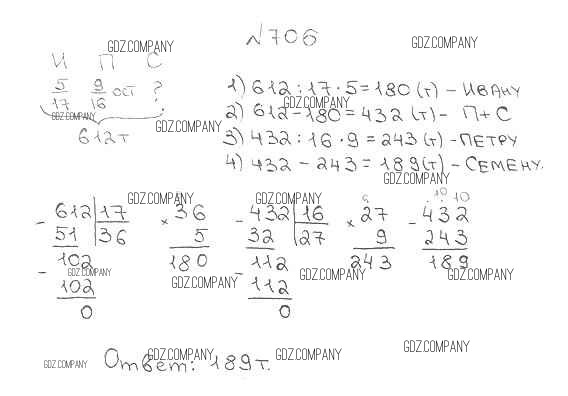 №706
GDZ.COMPANY GDZ.COMPANY
И П С
5/17 9/16 ост ?
GDZ.COMPANY
612т
GDZ.COMPANY
1) 612:17·5=180(т) – ИВАНУ
GDZ.COMPANY
2) 612–180=432(т) – П+С
3) 432:16·9=243(т) – ПЕТРУ
4) 432–243=189(т) – СЕМЕНУ.
GDZ.COMPANY
GDZ.COMPANY GDZ.COMPANY
– 612|17 × 36 – 432|16 × 27 – 432
51 |36 5 32 |27 9 243
– 102 180 – 112 243 189
102 112
0 0
GDZ.COMPANY GDZ.COMPANY GDZ.COMPANY GDZ.COMPANY
GDZ.COMPANY
Ответ: 189т.
GDZ.COMPANY GDZ.COMPANY GDZ.COMPANY